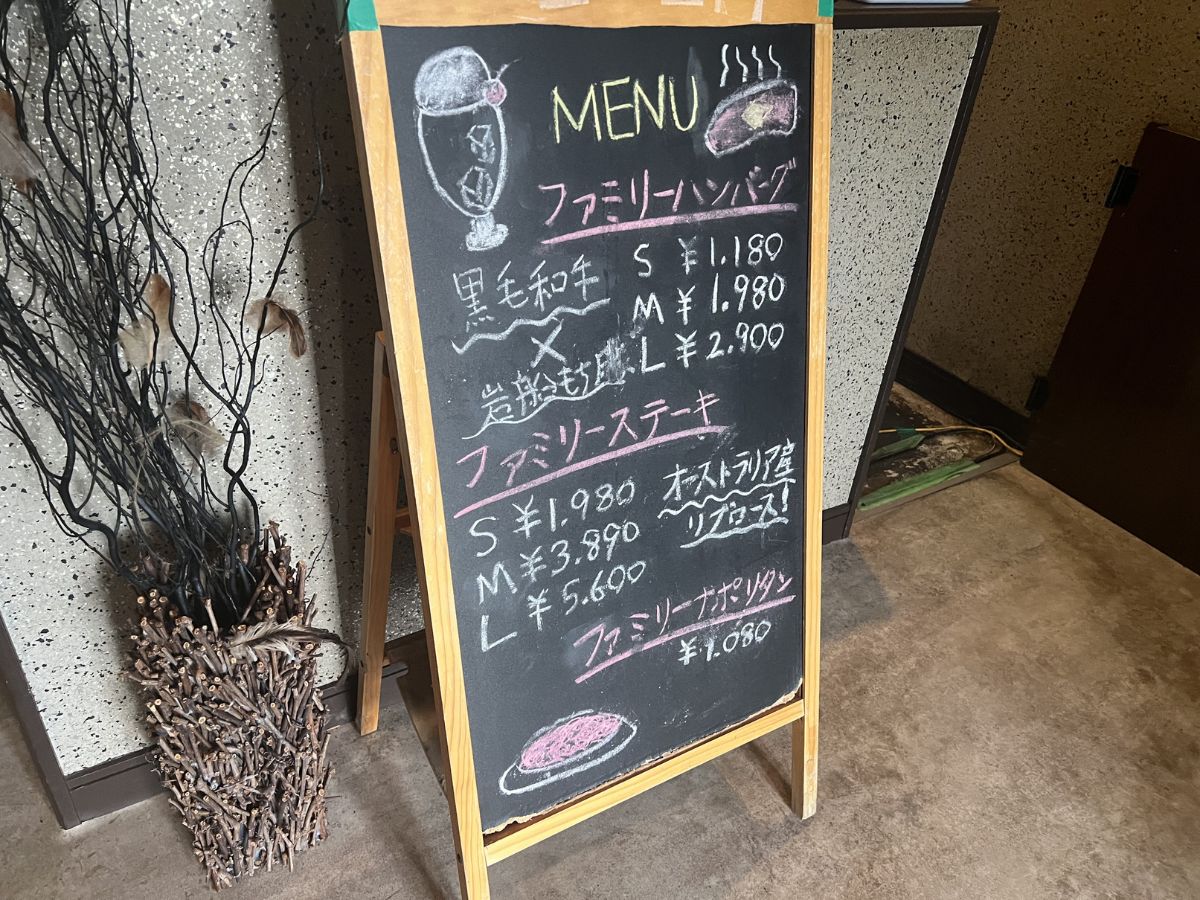 MENU
ファミリーハンバーグ
黒毛和牛
×
岩船もち豚
S ¥1.180
M ¥1.980
L ¥2.900
ファミリーステーキ
S ¥1.980
M ¥3.890
L ¥5.600
オーストラリア産
リブロース!
ファミリーナポリタン
¥1.080